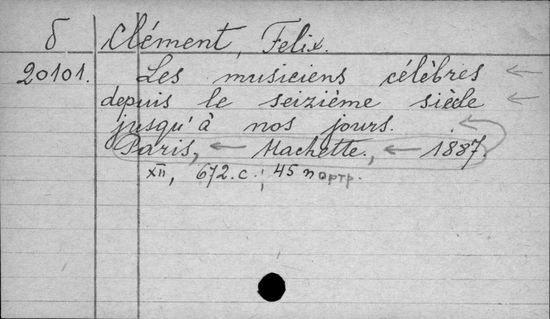 б Clément, Felix.
20101. Les musiciens célèbres
depuis le seizième siècle
jusqu'à nos jours.
Paris, Hachette, 1887.
XII, 672.c.; 45 портр.